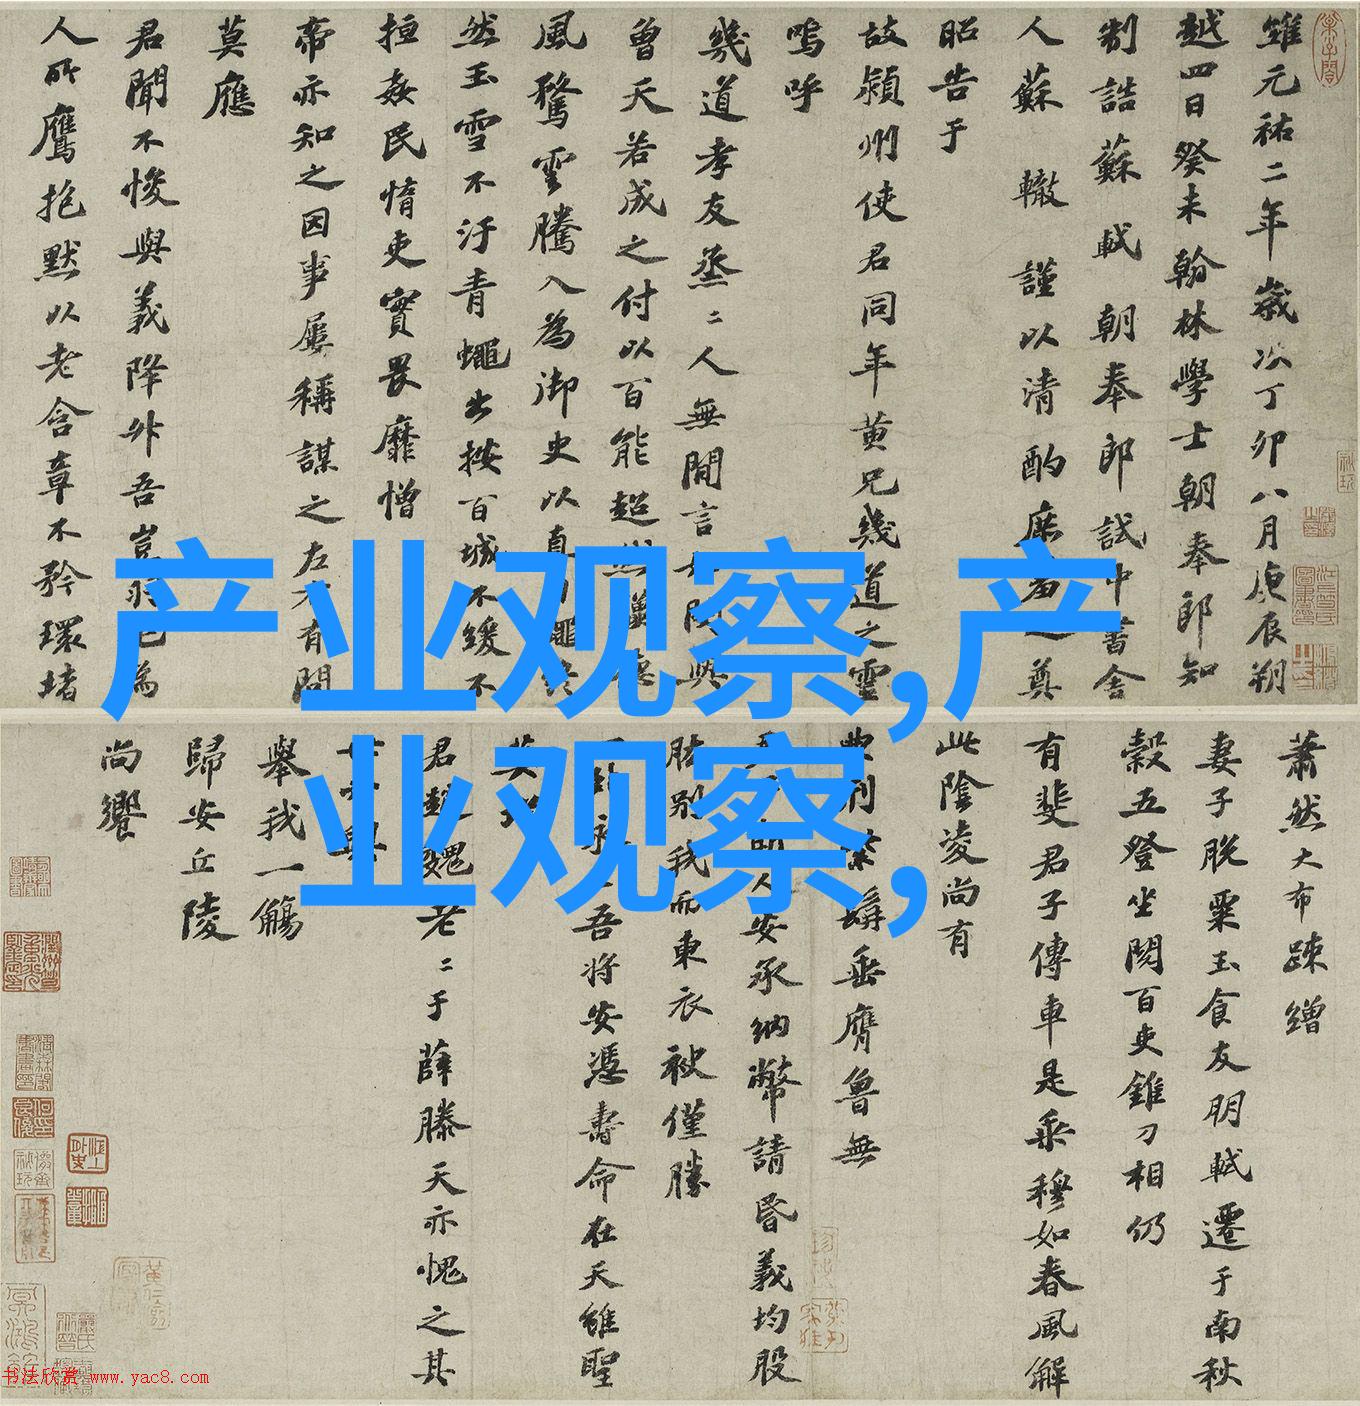 維元祐二年歲次丁卯八月庚辰朔
越四日癸未翰林學士朝奉郎知
制誥蘇軾朝奉郎試中書舍
人蘇轍謹以清酌庶羞之奠
昭告于
故潁州使君同年黃兄幾道之靈
嗚呼
幾道孝友烝二人無間言如閔與
曾天若成之付以百能超然驥德
風騖雲騰入為御史以直自繩終
然玉雪不汙青蠅出按百城不緩不
拒姦民惰吏實畏靡憎
帝亦知之因事屢稱謀之左右有問
莫應
君聞不悛與義降升吾豈羽毛為
人所鷹抱默以老含章不矜環堵
产业观察,产
业观察,
蕭然大布疎繒
妻子脫粟玉食友朋軾遷于南秋
穀五登坐閱百吏錐刀相仍
有斐君子傳車是乘穆如春風解
此陰凌尚有
典刑紫髯垂膺魯無
斯人安承納幣請昏義均股
肱別我而東衣袂僅勝
永已吾將安憑壽命在天雖聖
莫增
君趙魏老二于薛滕天亦愧之其
舉我一觴
歸安丘陵
尚饗
书法欣赏 www.yac8.com